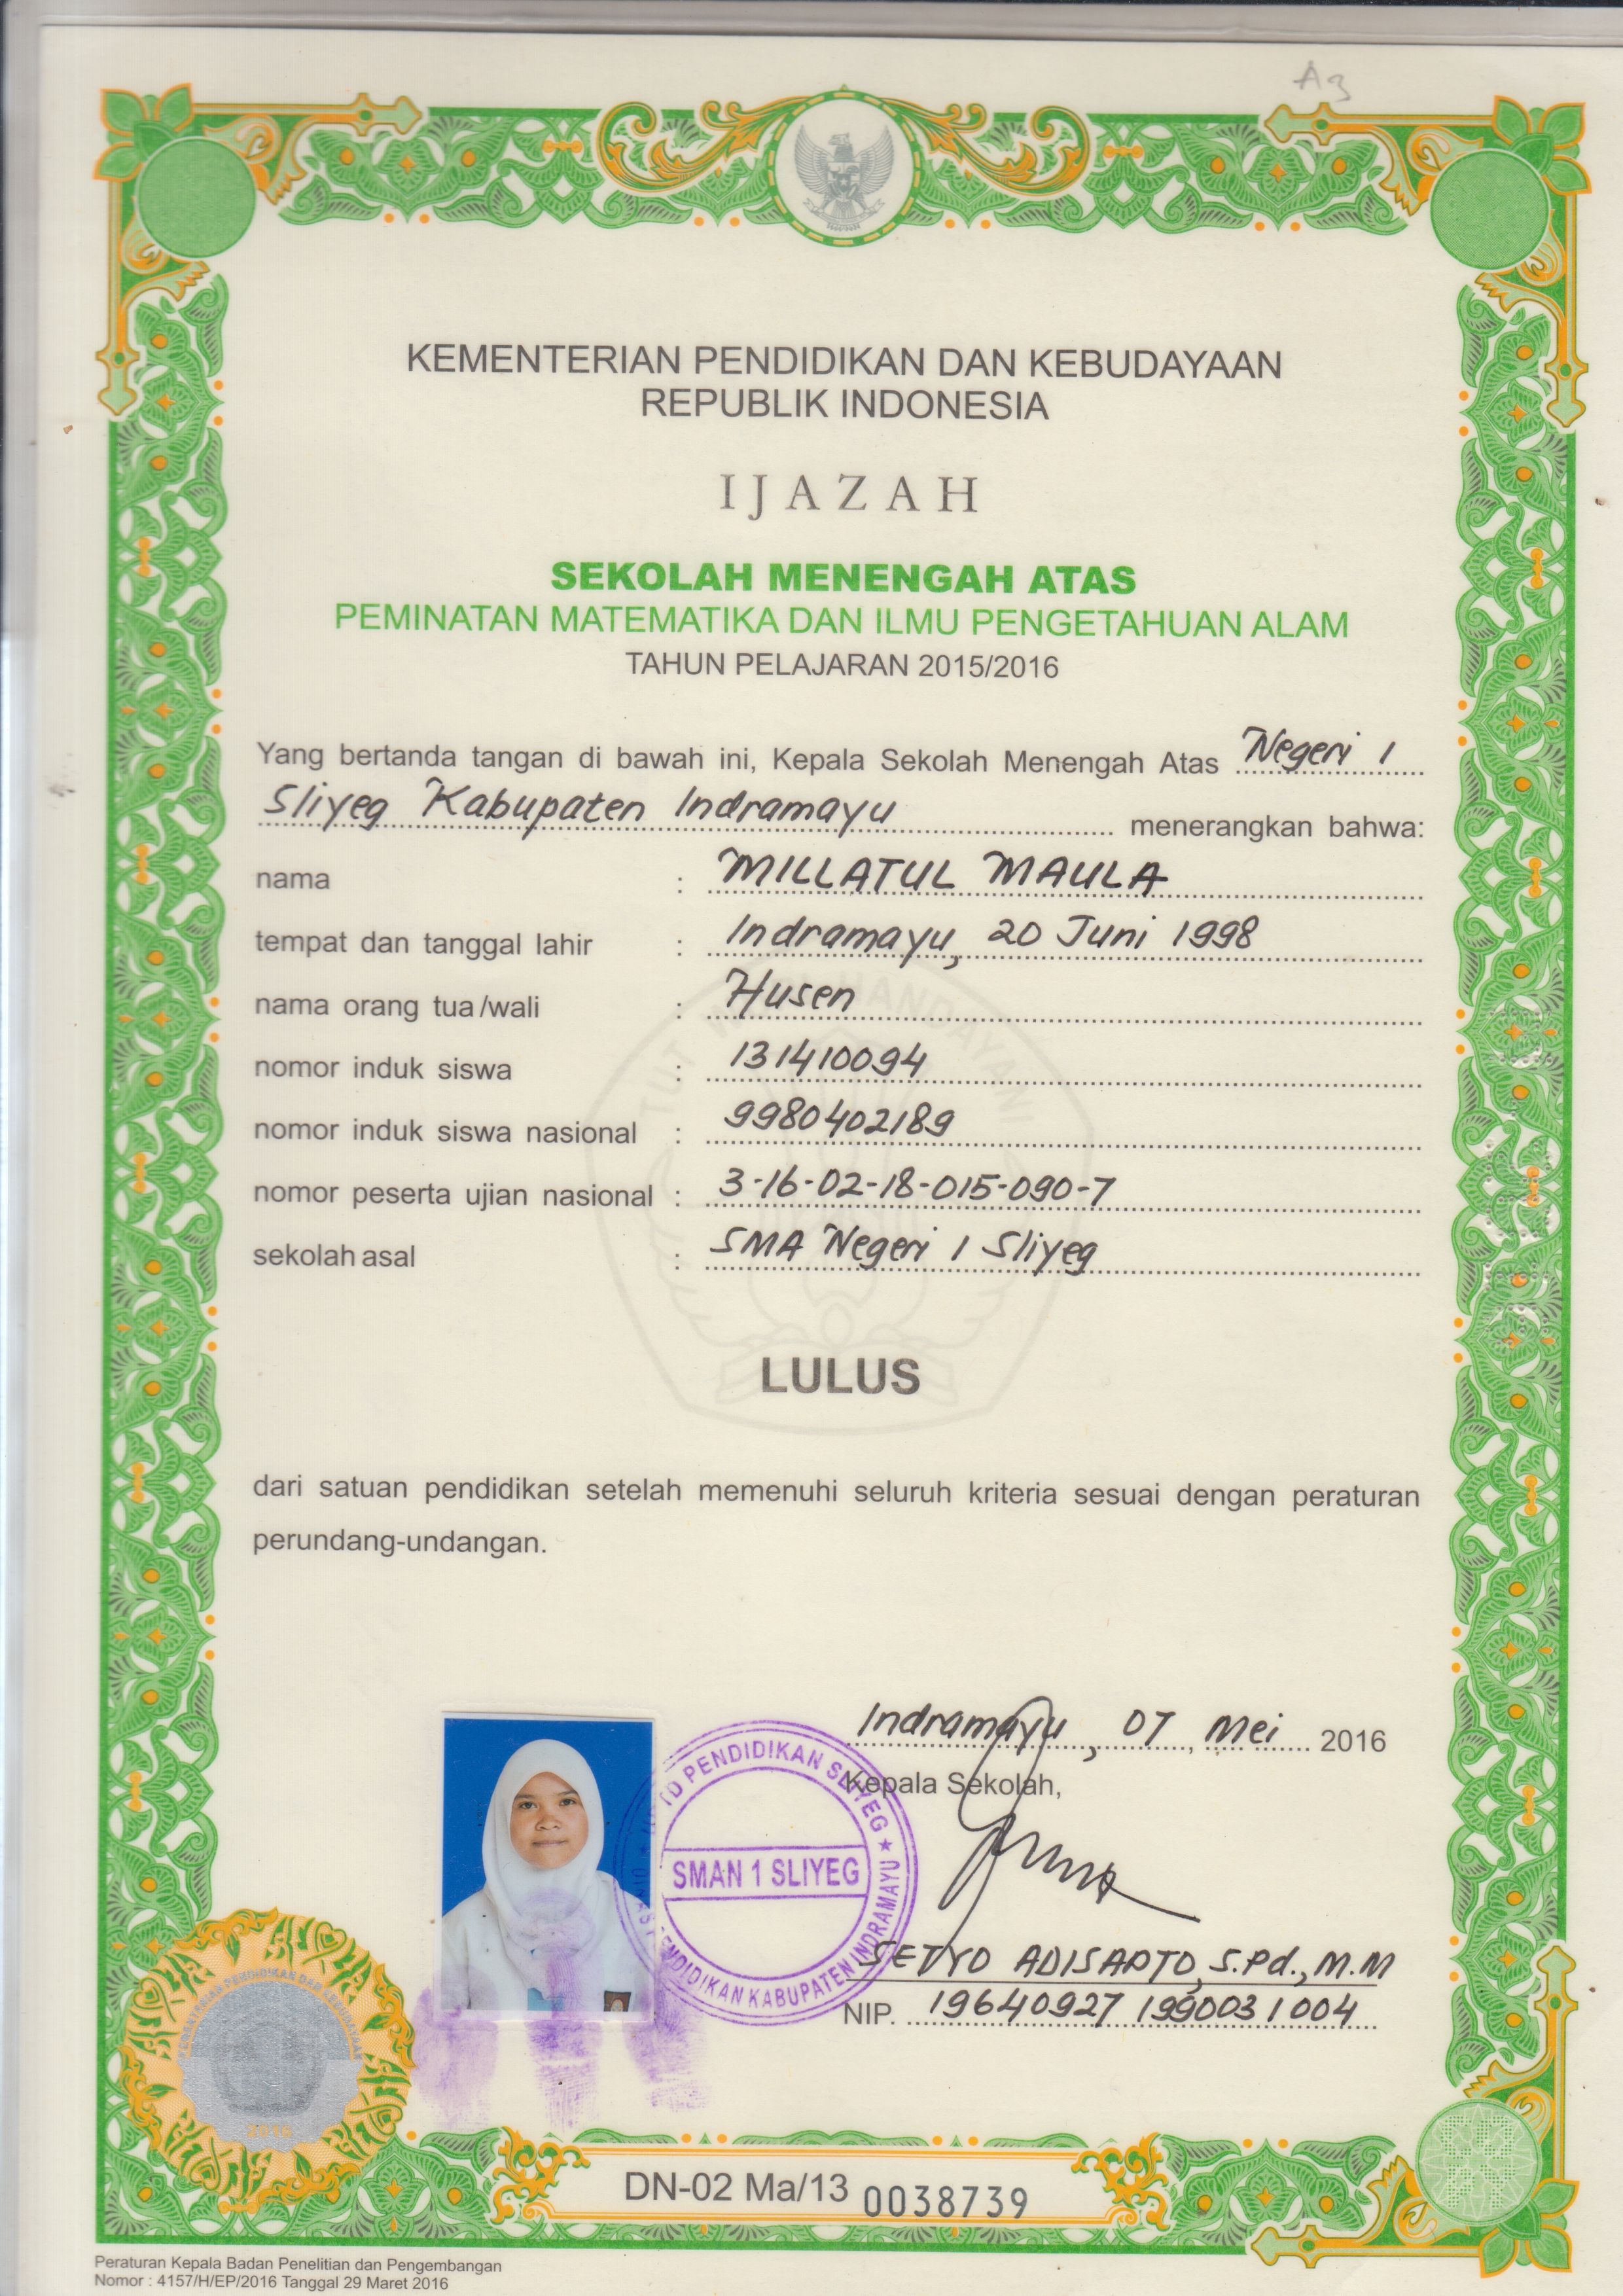 A3
KEMENTERIAN PENDIDIKAN DAN KEBUDAYAAN
REPUBLIK INDONESIA
IJAZAH
SEKOLAH MENENGAH ATAS
PEMINATAN MATEMATIKA DAN ILMU PENGETAHUAN ALAM
TAHUN PELAJARAN 2015/2016
Yang bertanda tangan di bawah ini, Kepala Sekolah Menengah Atas Negeri 1
Sliyeg Kabupaten Indramayu menerangkan bahwa:
nama : MILLATUL MAULA
tempat dan tanggal lahir : Indramayu, 20 Juni 1998
nama orang tua/wali : Husen
nomor induk siswa : 131410094
nomor induk siswa nasional : 9980402189
nomor peserta ujian nasional : 3-16-02-18-015-090-7
sekolah asal : SMA Negeri 1 Sliyeg
TUT HANDAYANI
LULUS
dari satuan pendidikan setelah memenuhi seluruh kriteria sesuai dengan peraturan
perundang-undangan.
Indramayu, 07, Mei 2016
Kepala Sekolah,
PENDIDIKAN SLIYEG
SMAN 1 SLIYEG
PENDIDIKAN KABUPATEN INDRAMAYU
SETYO ADISAPTO, S.Pd., M.M
NIP. 19640927 199003 1 004
DN-02 Ma/13 0038739
Peraturan Kepala Badan Penelitian dan Pengembangan
Nomor : 4157/H/EP/2016 Tanggal 29 Maret 2016